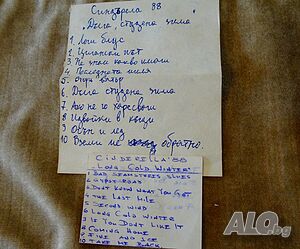 Синдерела 88
„Дълга, студена зима“
1 Лош блус
2 Цигански път
3 Не знам какво имаш
4 Последната миля
5 Втори вятър
6 Дълга студена зима
7 Ако не го харесваш
8 Идвайки в къщи
9 Огън и лед
10 Вземи ме обратно.
CINDERELLA'88
"LONG COLD WINTER"
1 BAD SEAMSTRESS BLUES
2 GYPSY ROAD
3 DONT KNOW WHAT YOU GOT
4 THE LAST MILE
5 SECOND WIND
6 LONG COLD WINTER
7 IF YOU DONT LIKE IT
8 COMING HOME
9 FIRE AND ICE
10 TAKE ME BACK
ALO.BG